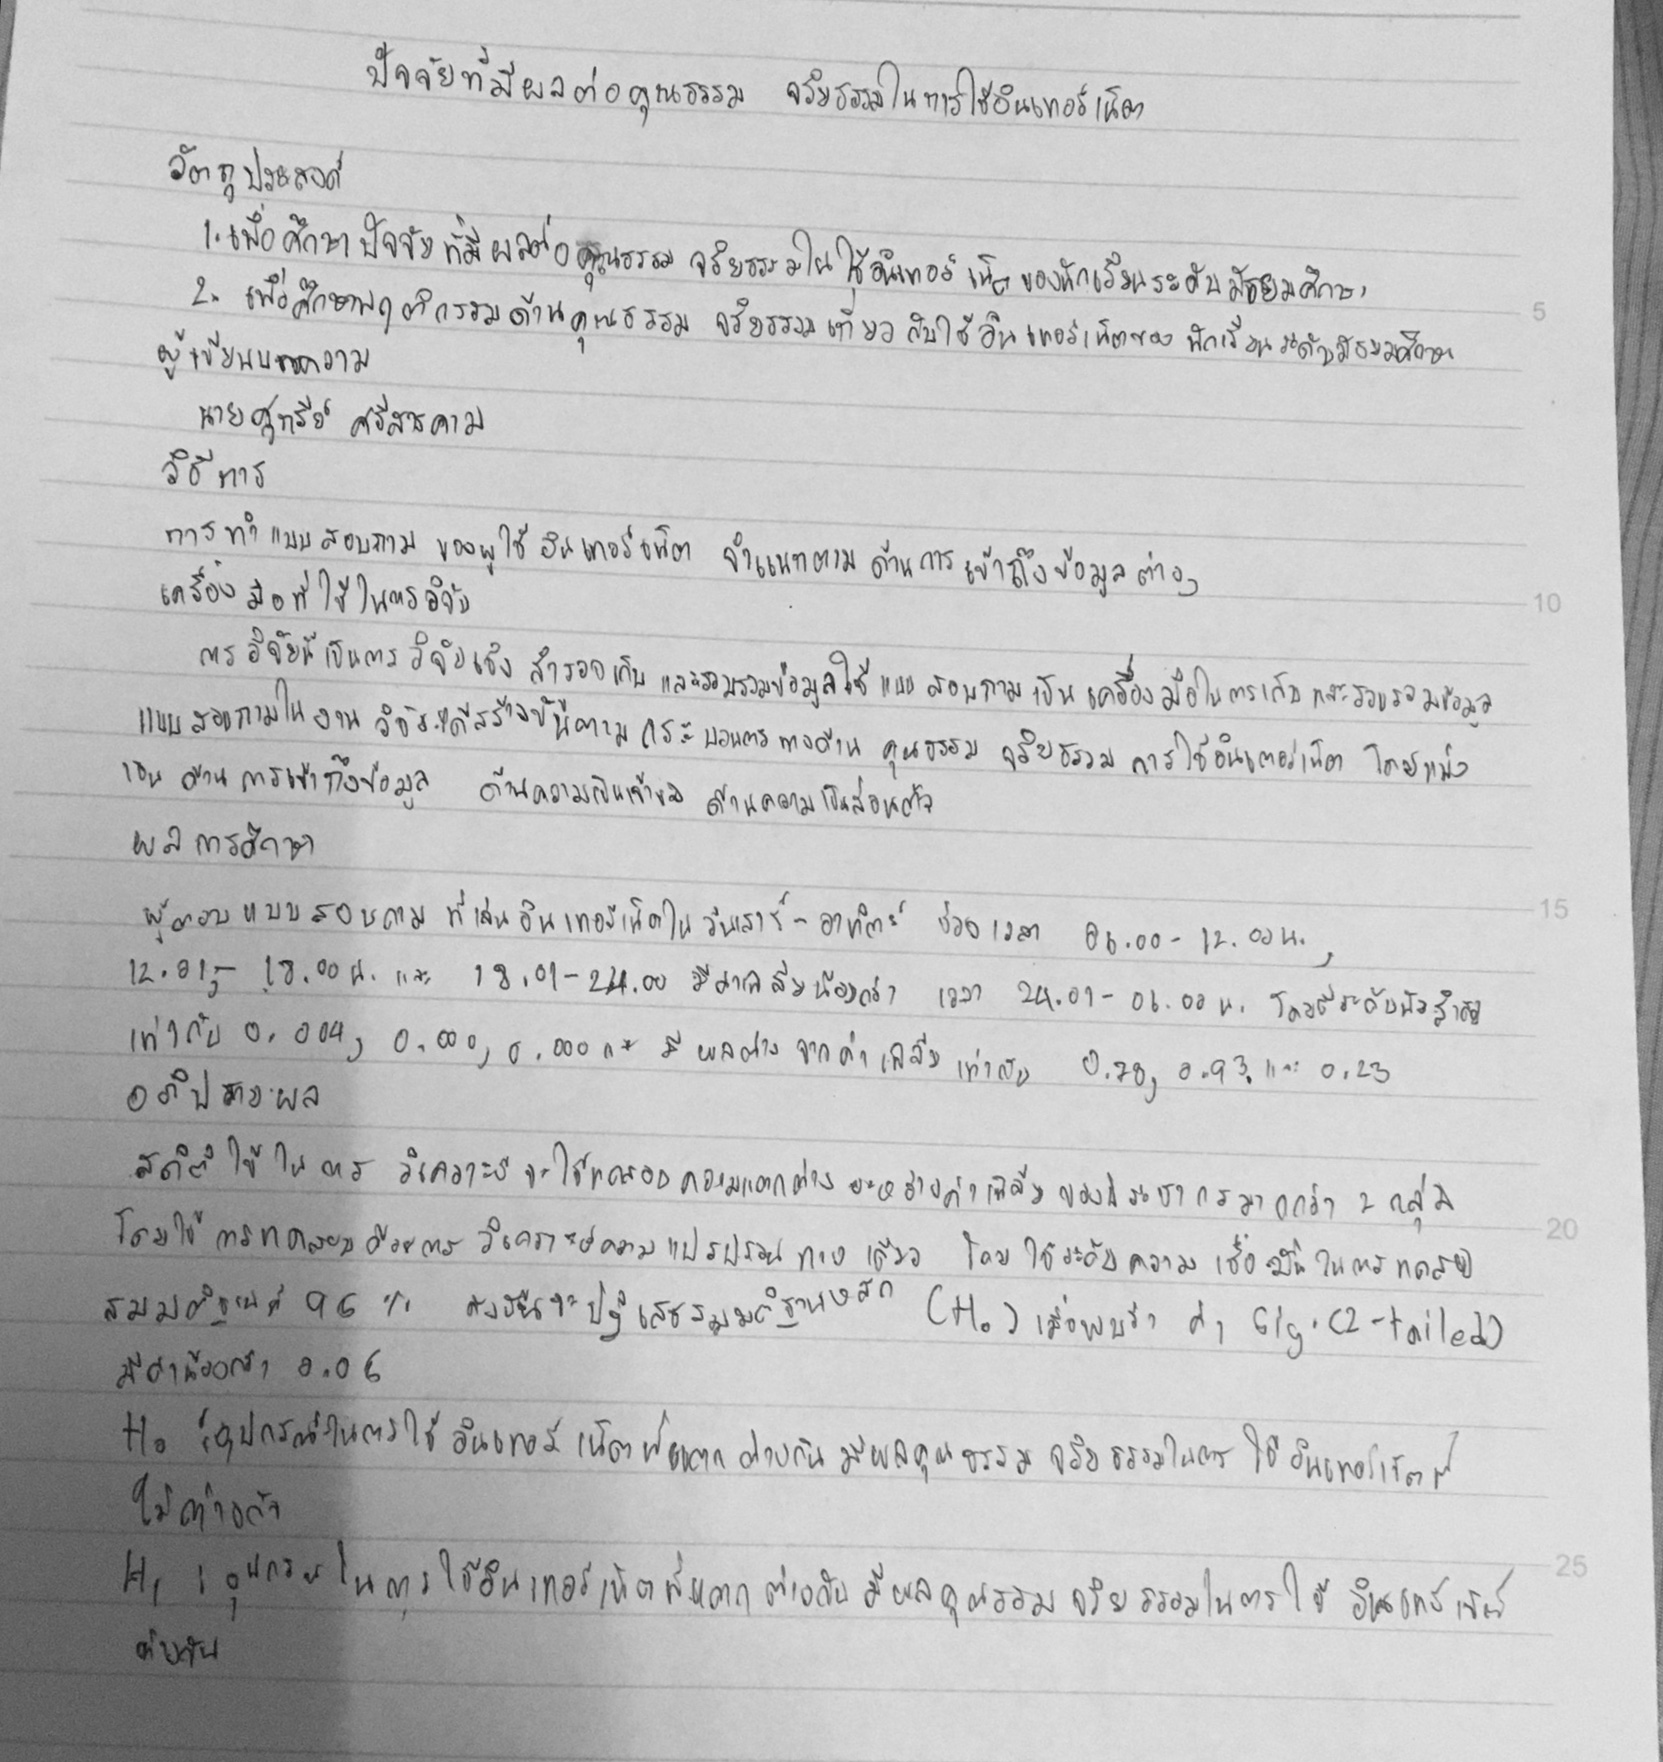 ปัจจัยที่มีผลต่อคุณธรรม จริยธรรมในการใช้อินเทอร์เน็ต
วัตถุประสงค์
1. เพื่อศึกษาปัจจัยที่มีผลต่อคุณธรรม จริยธรรมในใช้อินเทอร์เน็ตของนักเรียนระดับมัธยมศึกษา
5
2. เพื่อศึกษาพฤติกรรมด้านคุณธรรม จริยธรรมเกี่ยวกับใช้อินเทอร์เน็ตของนักเรียนระดับมัธยมศึกษา
ผู้เขียนบทความ
นาย ศรีสารคาม
วิธีการ
การทำแบบสอบถาม ของผู้ใช้อินเทอร์เน็ต จำแนกตาม ด้านการเข้าถึงข้อมูลต่างๆ
10
เครื่องมือที่ใช้ในการวิจัย
การวิจัยนี้เป็นการวิจัยเชิง สำรวจเก็บ และรวบรวมข้อมูลใช้แบบสอบถามเป็นเครื่องมือในการเก็บและรวบรวมข้อมูล
แบบสอบถามในงานวิจัยได้สร้างขึ้นตามกระบวนการทางด้าน คุณธรรม จริยธรรม การใช้อินเตอร์เน็ต โดยแบ่ง
เป็น ด้านการเข้าถึงข้อมูล ด้านความเป็นเจ้าของ ด้านความเป็นส่วนตัว
ผลการศึกษา
15
ผู้ตอบแบบสอบถาม ที่เล่นอินเทอร์เน็ตในวันเสาร์-อาทิตย์ ช่วงเวลา 06.00-12.00 น.,
12.01- 18.00 น. และ 18.01-24.00 มีค่าเฉลี่ยน้อยกว่า เวลา 24.01-06.00 น. โดยมีระดับนัยสำคัญ
เท่ากับ 0.004, 0.000, 0.000 และ มีผลต่างจากค่าเฉลี่ย เท่ากับ 0.78, 0.93, และ 0.23
อภิปรายผล
สถิติใช้ในการ วิเคราะห์จะใช้ทดสอบความแตกต่างระหว่างค่าเฉลี่ยของประชากรมากกว่า 2 กลุ่ม
20
โดยใช้การทดสอบด้วยการ วิเคราะห์ความแปรปรวนทางเดียว โดยใช้ระดับความเชื่อมั่นในการทดสอบ
สมมติฐานที่ 96 % ดังนั้นจะปฏิเสธสมมติฐานหลัก (H₀) เมื่อพบว่า ค่า Sig.(2-tailed)
มีค่าน้อยกว่า 0.06
H₀ : อุปกรณ์ในการใช้อินเทอร์เน็ตที่แตกต่างกัน มีผลคุณธรรม จริยธรรมในการใช้อินเทอร์เน็ตที่
ไม่ต่างกัน
25
H₁ : อุปกรณ์ในการใช้อินเทอร์เน็ตที่แตกต่างกัน มีผลคุณธรรม จริยธรรมในการใช้ อินเทอร์เน็ตที่
ต่างกัน